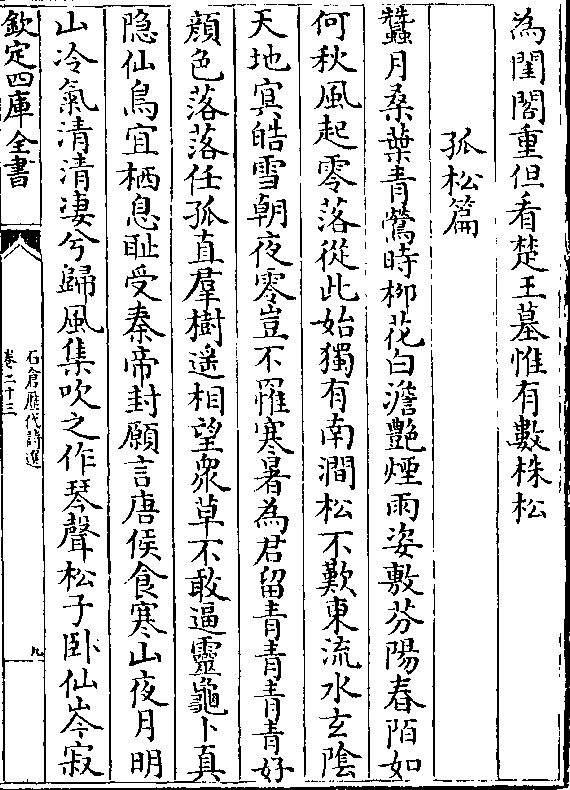 為閨閤重但看楚王墓惟有數株松
孤松篇
蠶月桑葉青鶯時柳花白澹艷煙雨姿敷芬陽春陌如
何秋風起零落從此始獨有南澗松不歎東流水玄陰
天地㝠皓雪朝夜零豈不罹寒暑為君留青青青青好
顔色落落任孤直羣樹遥相望衆草不敢逼靈龜卜真
隐仙鳥宜栖息恥受秦帝封願言唐侯食寒山夜月明
山冷氣清清淒兮歸風集吹之作琴聲松子卧仙岑寂
欽定四庫全書
石倉歷代詩選
卷二十三
九